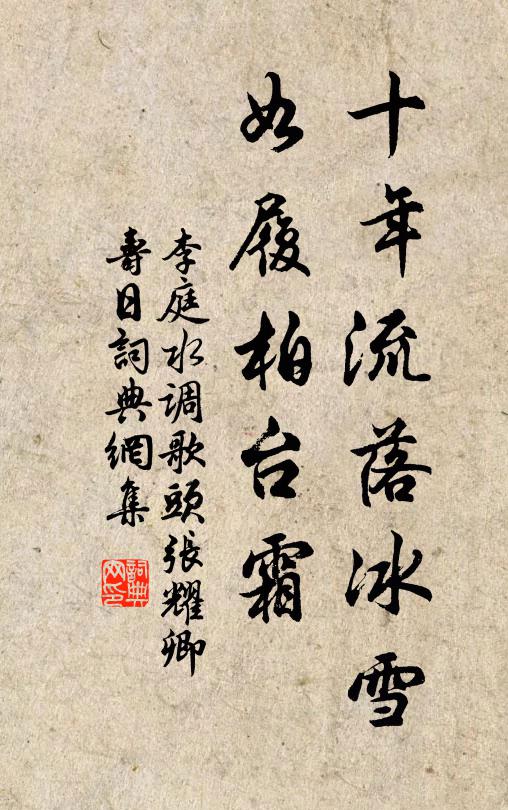 十年流落冰雪
如履柏台霜
李庭水调歌頭張耀卿
壽日詞典網集
詞典网印